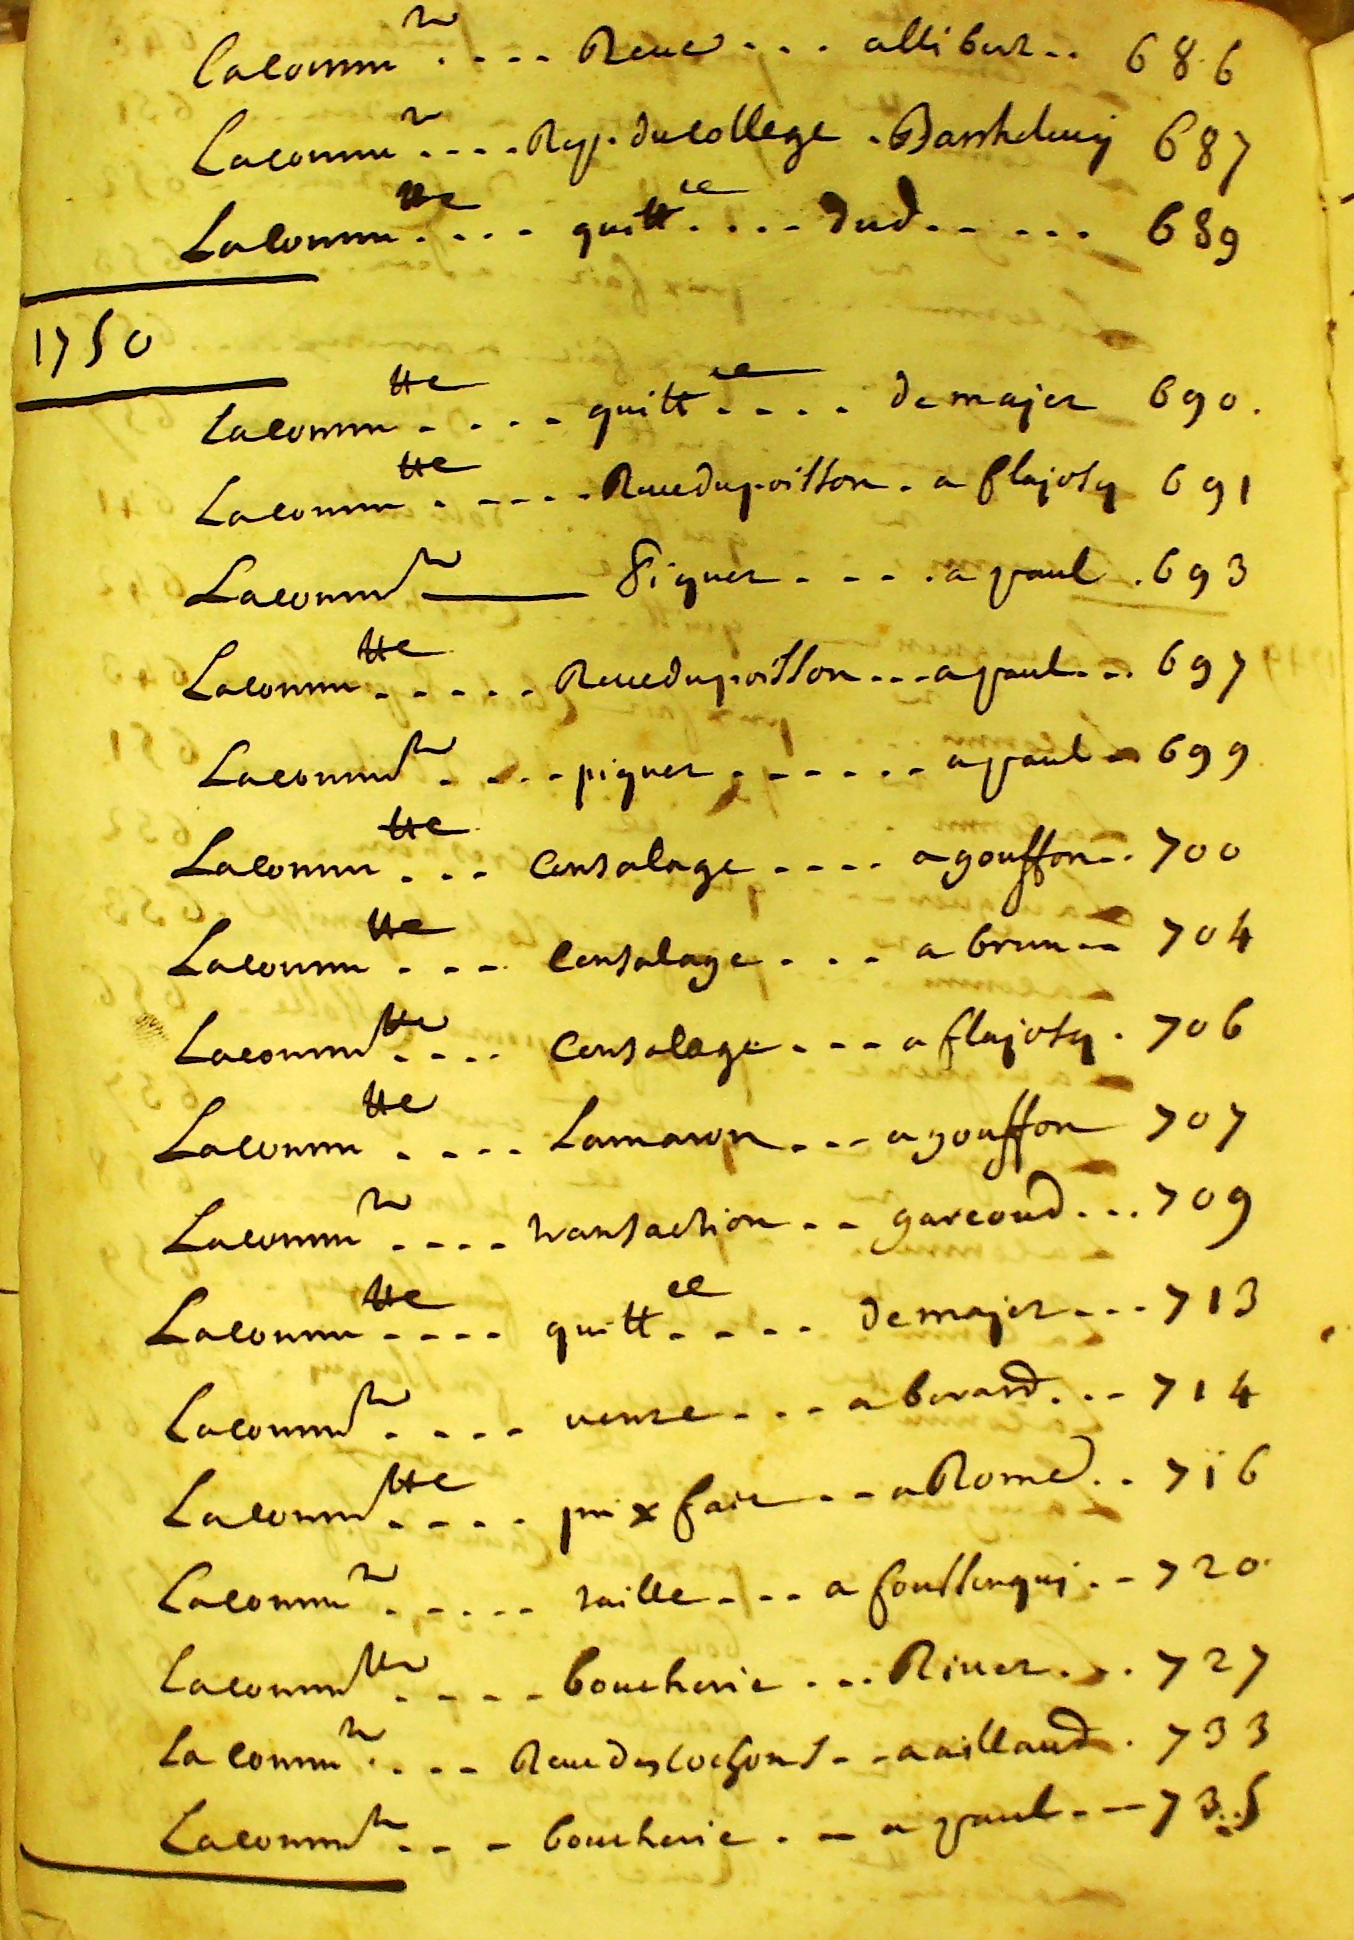 Lacommu^te .... Reve ... allibert .. 686
Lacommu^te .... Rap. du college . Barthelemy 687
Lacommu^tte .... quitt^ce .... dud ...... 689
1750
Lacommu^tte .... quitt^ce .... demajer 690.
Lacommu^tte ..... Reve du poisson . a flajosq 691
Lacommu^te piquet .... a paul . 693
Lacommu^tte ..... Reve du poisson ... a paul ... 697
Lacommu^te .... piquet ...... a paul . 699
Lacommu^tte ... Censalage .... a gouffon .. 700
Lacommu^tte .... Censalage ... a brun .. 704
Lacommu^tte .... Censalage ... a flajosq . 706
Lacommu^tte .... Lamaron ... a gouffon 707
Lacommu^te .... transaction .. garcoud ... 709
Lacommu^tte .... quitt^ce .... demajer ... 713
Lacommu^te .... vente ... a berard ... 714
Lacommu^tte .... prix fait .. a Rome .. 716
Lacommu^te ..... taille ... a 720
Lacommu^tte .... boucherie ... River .. 727
La commu^te .... Reve des cochons .. a aillaud . 733
Lacommu^te ... boucherie .. a paul .. 735